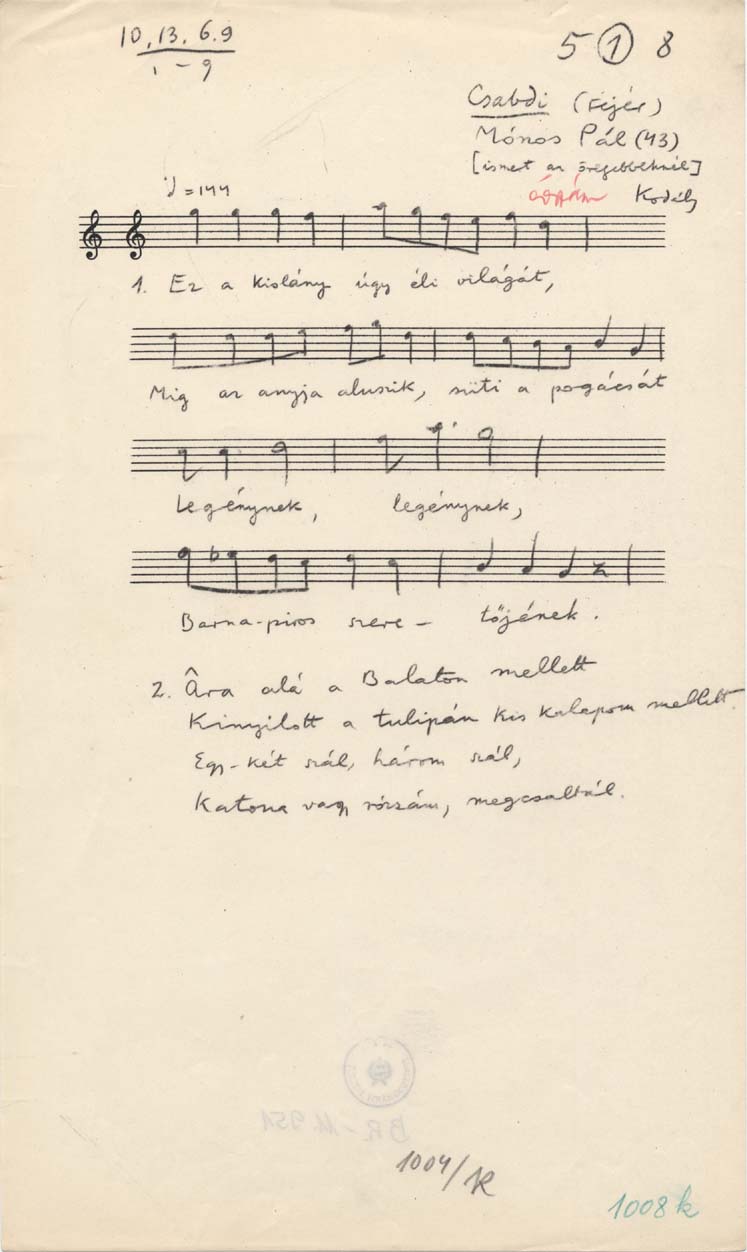 10, 13, 6.9
1 - 9
5 1 8
Csabdi (Fejér)
Mónos Pál (43)
[ismert az öregebbeknél]
Kodály
♩ = 144
1. Ez a kislány úgy éli világát,
Mig az anyja aluszik, süti a pogácsát
Legénynek, legénynek,
Barna-piros szere - tőjének.
2. Âra alá a Balaton mellett
Kinyilott a tulipán kis kalapom mellett.
Egy-két szál, három szál,
Katona vagy rózsám, megcsaltál.
BR - 11951
1004/K
1008 k